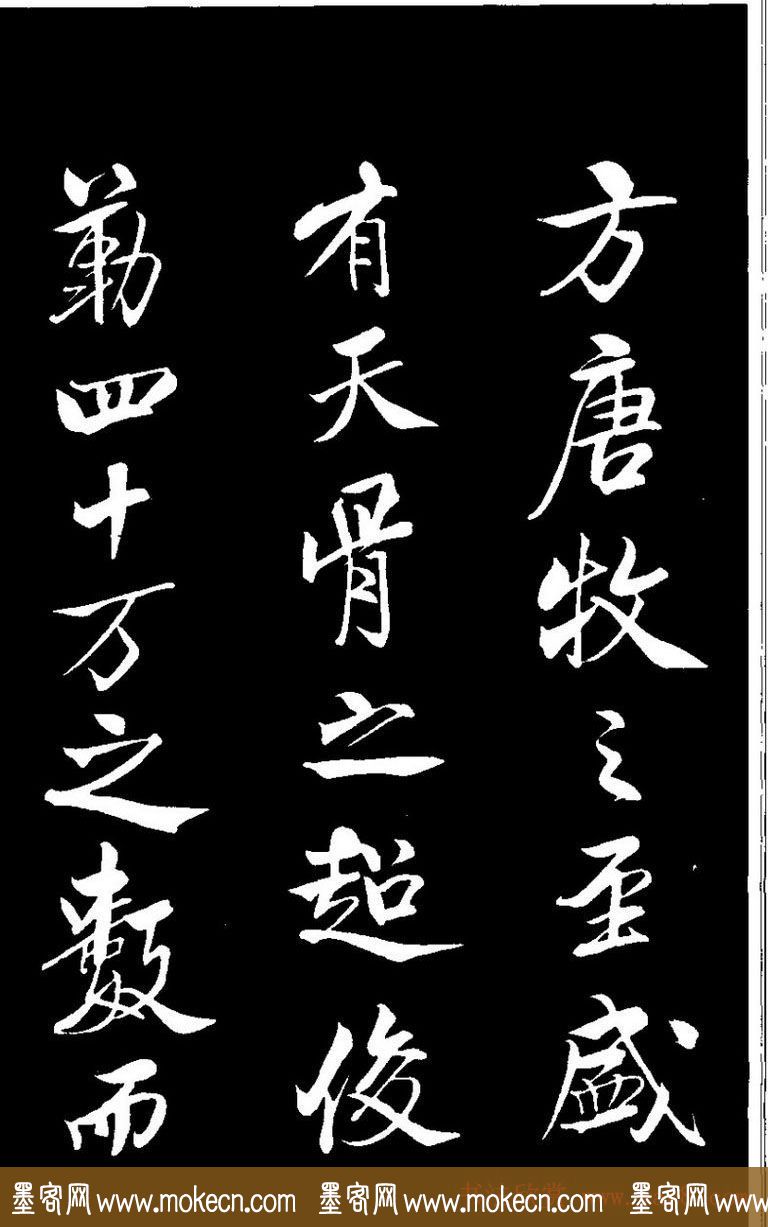 方唐牧之至盛
有天骨之超俊
勒四十万之數而
墨客网 www.mokecn.com 墨客网 www.mokecn.com 墨客网 www.mokecn.com